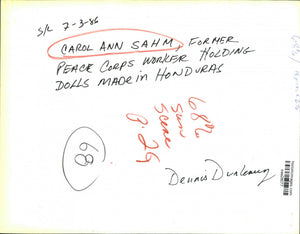 S/L 7-3-86
CAROL ANN SAHM, FORMER
PEACE CORPS WORKER HOLDING
DOLLS MADE IN HONDURAS
68%
Sun
Scene
P. 29
68
Dennis Dunleavy